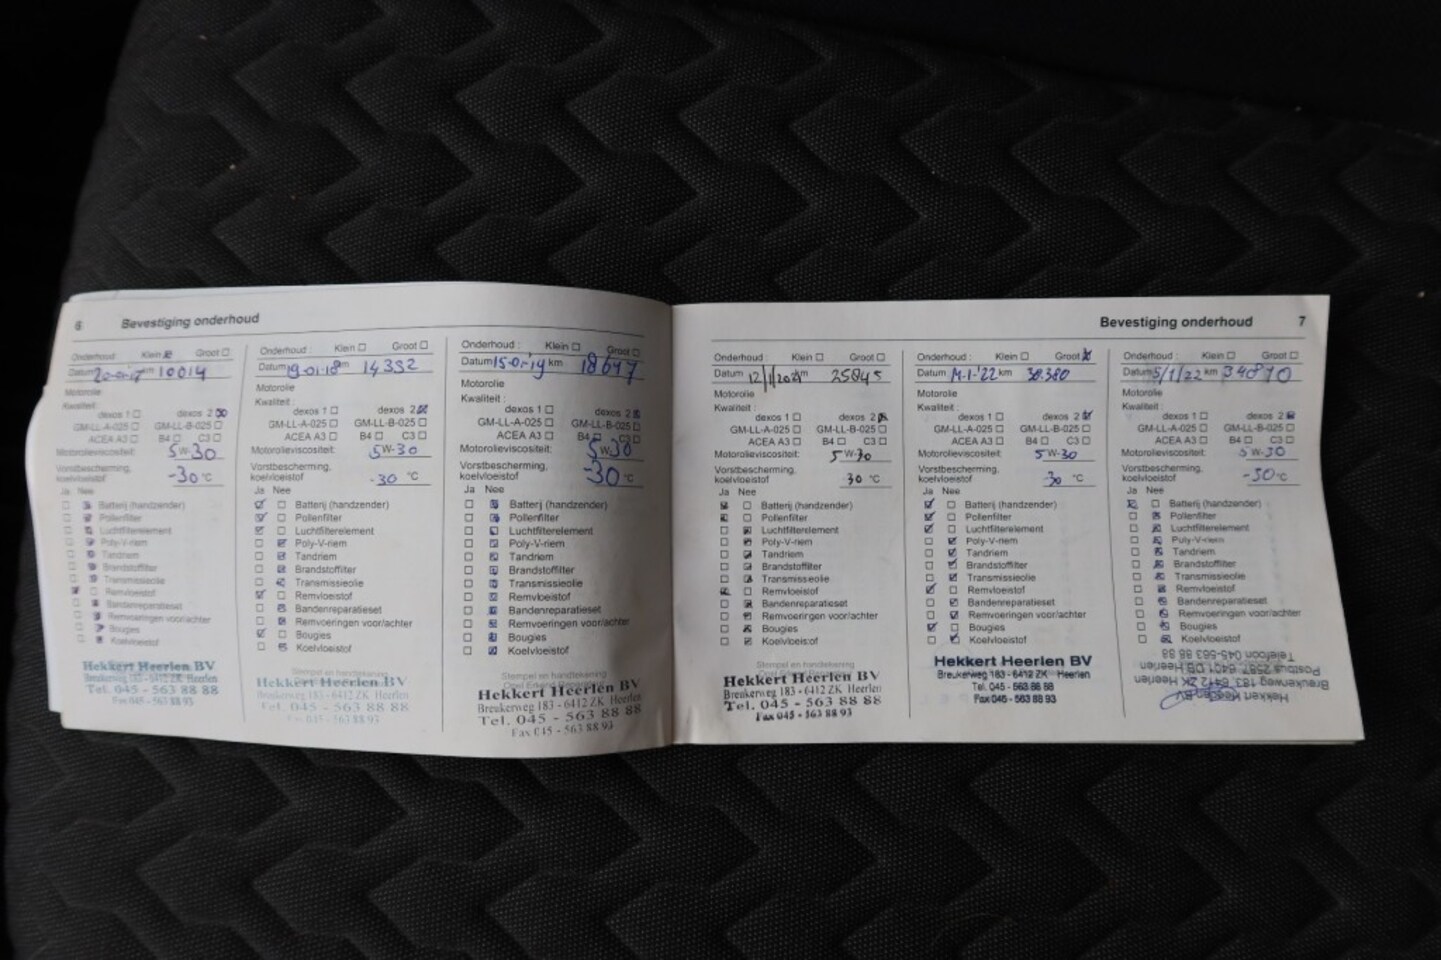 6 Bevestiging onderhoud
Onderhoud : Klein Groot
Datum km 10014
Motorolie
Kwaliteit :
dexos 1 dexos 2
GM-LL-A-025 GM-LL-B-025
ACEA A3 B4 C3
Motorolieviscositeit: 5W-30
Vorstbescherming,
koelvloeistof -30 °C
Ja Nee
Batterij (handzender)
Pollenfilter
Luchtfilterelement
Poly-V-riem
Tandriem
Brandstoffilter
Transmissieolie
Remvloeistof
Bandenreparatieset
Remvoeringen voor/achter
Bougies
Koelvloeistof
Hekkert Heerlen BV
Breukerweg 183 - 6412 ZK Heerlen
Tel. 045 - 563 88 88
Fax 045 - 563 88 93
Onderhoud : Klein Groot
Datum 19-01-18 km 14352
Motorolie
Kwaliteit :
dexos 1 dexos 2
GM-LL-A-025 GM-LL-B-025
ACEA A3 B4 C3
Motorolieviscositeit: 5W-30
Vorstbescherming,
koelvloeistof -30 °C
Ja Nee
Batterij (handzender)
Pollenfilter
Luchtfilterelement
Poly-V-riem
Tandriem
Brandstoffilter
Transmissieolie
Remvloeistof
Bandenreparatieset
Remvoeringen voor/achter
Bougies
Koelvloeistof
Stempel en handtekening
Hekkert Heerlen BV
Breukerweg 183 - 6412 ZK Heerlen
Tel. 045 - 563 88 88
Fax 045 - 563 88 93
Onderhoud : Klein Groot
Datum km 18647
Motorolie
Kwaliteit :
dexos 1 dexos 2
GM-LL-A-025 GM-LL-B-025
ACEA A3 B4 C3
Motorolieviscositeit: 5W-30
Vorstbescherming,
koelvloeistof -30 °C
Ja Nee
Batterij (handzender)
Pollenfilter
Luchtfilterelement
Poly-V-riem
Tandriem
Brandstoffilter
Transmissieolie
Remvloeistof
Bandenreparatieset
Remvoeringen voor/achter
Bougies
Koelvloeistof
Stempel en handtekening
Hekkert Heerlen BV
Breukerweg 183 - 6412 ZK Heerlen
Tel. 045 - 563 88 88
Fax 045 - 563 88 93
Bevestiging onderhoud 7
Onderhoud : Klein Groot
Datum 12/1/2021 km 25845
Motorolie
Kwaliteit :
dexos 1 dexos 2
GM-LL-A-025 GM-LL-B-025
ACEA A3 B4 C3
Motorolieviscositeit: 5W-30
Vorstbescherming,
koelvloeistof -30 °C
Ja Nee
Batterij (handzender)
Pollenfilter
Luchtfilterelement
Poly-V-riem
Tandriem
Brandstoffilter
Transmissieolie
Remvloeistof
Bandenreparatieset
Remvoeringen voor/achter
Bougies
Koelvloeistof
Stempel en handtekening
Hekkert Heerlen BV
Breukerweg 183 - 6412 ZK Heerlen
Tel. 045 - 563 88 88
Fax 045 - 563 88 93
Onderhoud : Klein Groot
Datum km 30.380
Motorolie
Kwaliteit :
dexos 1 dexos 2
GM-LL-A-025 GM-LL-B-025
ACEA A3 B4 C3
Motorolieviscositeit: 5W-30
Vorstbescherming,
koelvloeistof -30 °C
Ja Nee
Batterij (handzender)
Pollenfilter
Luchtfilterelement
Poly-V-riem
Tandriem
Brandstoffilter
Transmissieolie
Remvloeistof
Bandenreparatieset
Remvoeringen voor/achter
Bougies
Koelvloeistof
Hekkert Heerlen BV
Breukerweg 183 - 6412 ZK Heerlen
Tel. 045 - 563 88 88
Fax 045 - 563 88 93
Onderhoud : Klein Groot
Datum km 34810
Motorolie
Kwaliteit :
dexos 1 dexos 2
GM-LL-A-025 GM-LL-B-025
ACEA A3 B4 C3
Motorolieviscositeit: 5W-30
Vorstbescherming,
koelvloeistof -30 °C
Ja Nee
Batterij (handzender)
Pollenfilter
Luchtfilterelement
Poly-V-riem
Tandriem
Brandstoffilter
Transmissieolie
Remvloeistof
Bandenreparatieset
Remvoeringen voor/achter
Bougies
Koelvloeistof
Hekkert Heerlen BV
Breukerweg 183, 6412 ZK Heerlen
Postbus 2587, 6401 DB Heerlen
Telefoon 045-563 88 88